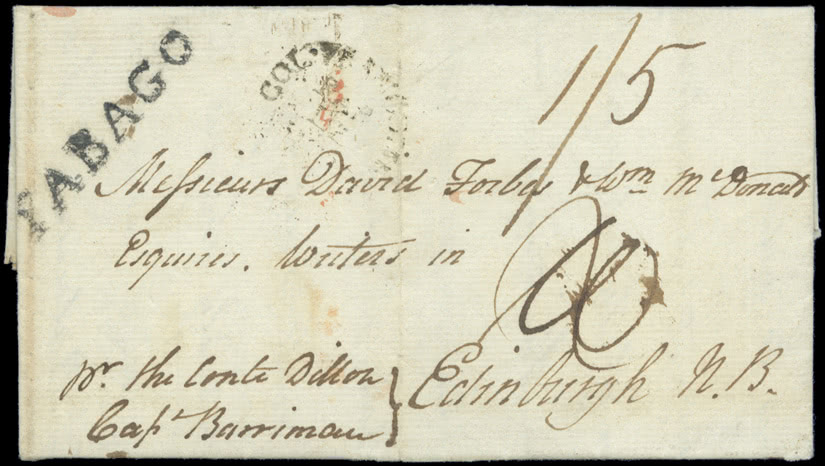 TABAGO
COL
1/5
Messieurs David Forbes & Wm McDonald
Esquires. Writers in
Edinburgh N.B.
pr. the Conte Dillon
Capt Barriman